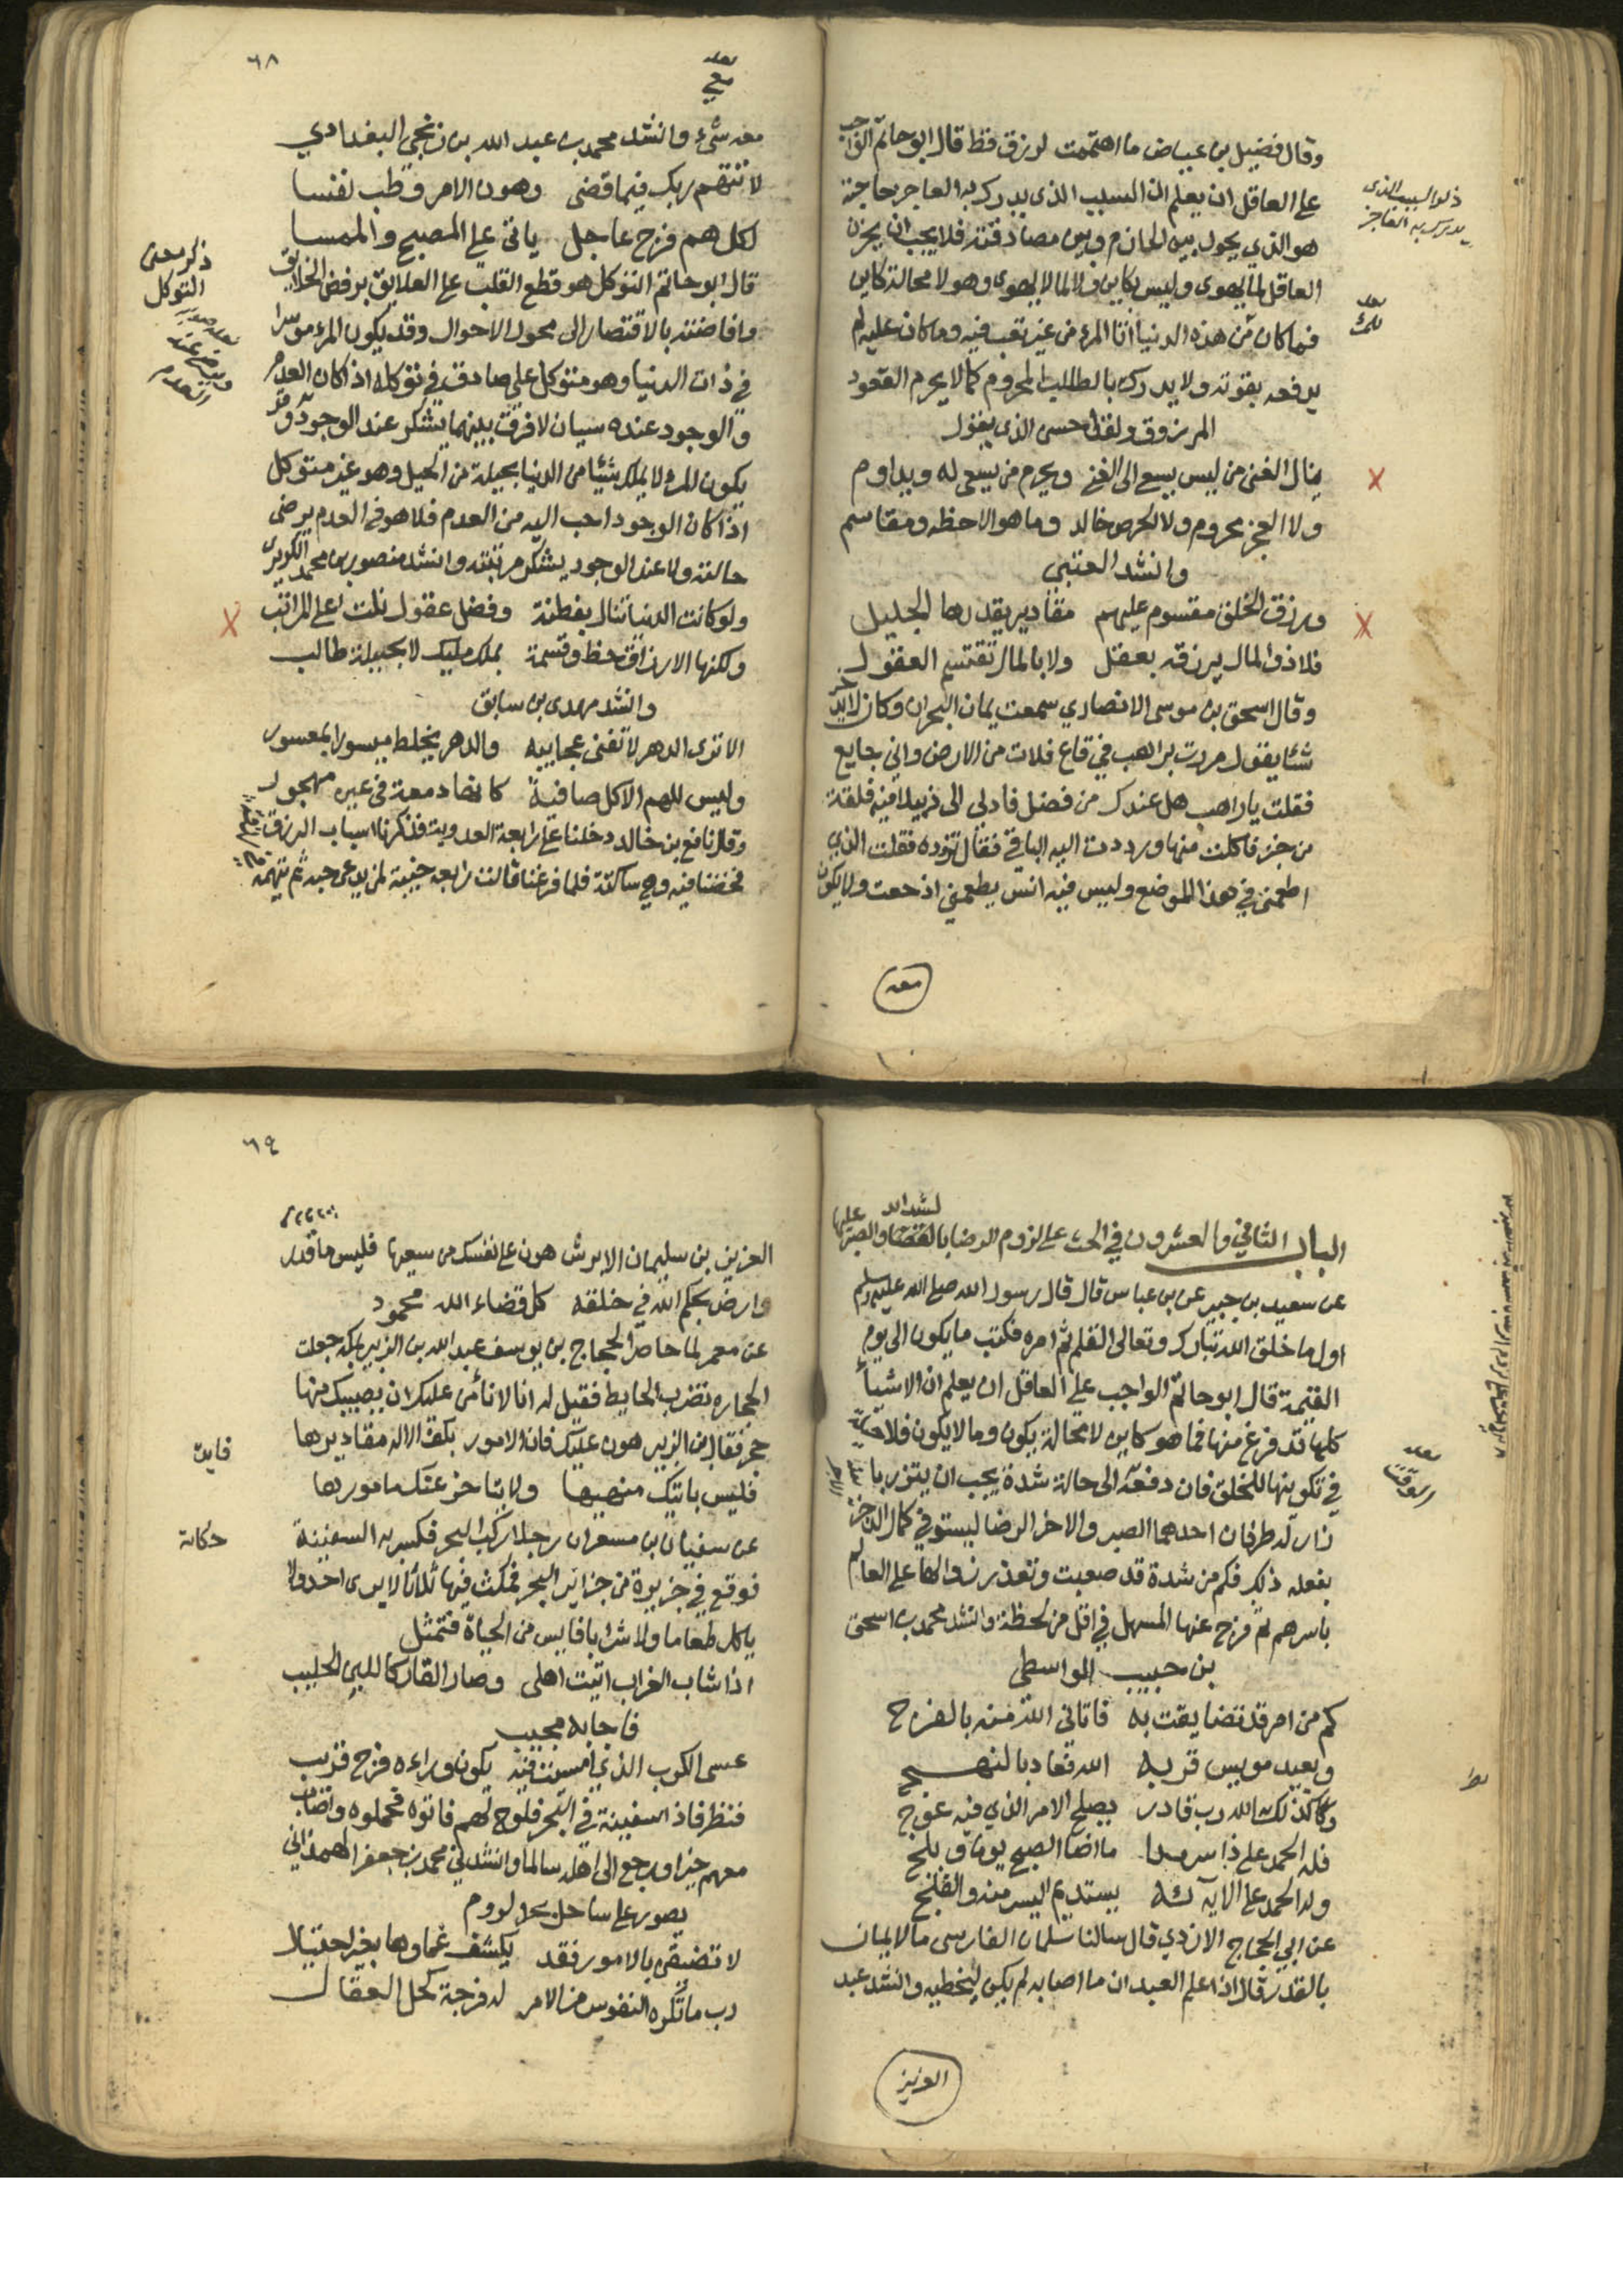 وقال فضيل بن عياض ما اهتممت لرزق قط قال ابو حاتم الواجب
على العاقل ان يعلم ان السبب الذي يدرك به العاجز حاجته
هو الذي يحول بين الحازم وبين مصادفته فلا يجب ان يحزن
العاقل لما يهوى وليس بكاين ولا لما لا يهوى وهو لا محالة كاين
فما كان من هذه الدنيا اتا المرء من غير تعب فيه وما كان عليه لم
يدفعه بقوته ولا يدرك بالطلب المحروم كما لا يحرم القعود
المرزوق ولقد احسن الذي يقول
ينال الغنى من ليس يسع الى الغنى ويحرم من يسعى له ويداوم
ولا العجز محروم ولا الحرص خالد وما هو الا حظه ومقاسم
وانشد العتبي
ورزق الخلق مقسوم عليهم مقادير يقدرها الجليل
فلا ذو المال يرزقه بعقل ولا بالمال تقتسم العقول
وقال اسحق بن موسى الانصاري سمعت يمان البحراني وكان لا يدخر
شئا يقول مررت براهب في قاع فلات من الارض واني جايع
فقلت يا راهب هل عندك من فضل فادلى الى زبيلا فيه فلقة
من خبز فاكلت منها ورددت اليه الباقي فقال تزوده فقلت الذي
اطعمني في هذا الموضع وليس فيه انس يطعمني اذ جعت ولا يكون
معه
ذكر السبب الذي
يدرك به العاجز
٦٨
معه شيء وانشد محمد بن عبد الله بن زنجي البغدادي
لا تتهم ربك فيما قضى وهون الامر وطب نفسا
لكل هم فرج عاجل ياتى على المصبح والممسا
قال ابو حاتم التوكل هو قطع القلب عن العلايق برفض الخلايق
واضافته بالافتقار الى محول الاحوال وقد يكون المرء موسرا
في ذات الدنيا وهو متوكل على صادق في توكله اذا كان العدم
والوجود عنده سيان لا فرق بينهما يشكر عند الوجود وقد
يكون المرء لا يملك شيئا من الدنيا بحيلة من الحيل وهو غير متوكل
اذا كان الوجود احب اليه من العدم فلا هو في العدم يرضى
حالته ولا عند الوجود يشكر مرتبته وانشد منصور بن محمد الكريزي
ولو كانت الدنيا تنال بفطنة وفضل عقول نلت اعلى المراتب
ولكنها الارزاق حظ وقسمة بملك مليك لا بحيلة طالب
وانشد مهدي بن سابق
الا ترى الدهر لا تفنى عجايبه والدهر يخلط ميسورا بمعسور
وليس للهم الا كل صافية كانها دمعة في عين مهجور
وقال نافع بن خالد دخلنا على رابعة العدوية فذكرنا اسباب الرزق
فخضنا فيه وهي ساكتة فلما فرغنا قالت رابعة خيبة لمن يدعى حبه ثم يتهمه
ذكر معنى
التوكل
الباب الثاني والعشرون في الحث على لزوم الرضا بالقضا والصبر عليها
عن سعيد بن جبير عن بن عباس قال قال رسول الله صلى الله عليه وسلم
اول ما خلق الله تبارك وتعالى القلم ثم امره فكتب ما يكون الى يوم
القيمة قال ابو حاتم الواجب على العاقل ان يعلم ان الاشيا
كلها قد فرغ منها فما هو كاين لا محالة يكون وما لا يكون فلا حيلة
في تكوينها للخلق فان دفعه الى حالة شدة يجب ان يتزر با
زار له طرفان احدهما الصبر والاخر الرضا ليستوفي كمال الاجر
بفعله ذلك فكم من شدة قد صعبت وتعذر زوالها على العالم
باسرهم ثم فرج عنها المسهل في اقل من لحظة وانشد محمد بن اسحق
بن حبيب الواسطي
كم من امر قد تضايقت به فاتاني الله منه بالفرج
وبعيد مويس قربه الله فعاد بالنهج
وكذلك الله رب قادر يصلح الامر الذي فيه عوج
فله الحمد على ذا سرمدا ما اضا الصبح يوما وبلج
وله الحمد على الايه كله يستديم اليسر منه والفلج
عن ابي الحجاج الازدي قال سالنا سلمان الفارسي ما الايمان
بالقدر قال اذا علم العبد ان ما اصابه لم يكن ليخطيه وانشد عبد
العزيز
٦٩
العزيز بن سليمان الابرش هون على نفسك من سعيها فليس ما قدر
وارض بحكم الله في خلقه كل قضاء الله محمود
عن معمر لما حاصر الحجاج بن يوسف عبد الله بن الزبير بمكة جعلت
الحجارة تضرب الحايط فقيل له انا لا نأمن عليك ان يصيبك منها
حجر فقال بن الزبير هون عليك فان الامور بكف الاله مقاديرها
فليس باتيك منهيها ولا يتاخر عنك مامورها
عن سفيان بن مسعر ان رجلا ركب البحر فكسر به السفينة
فوقع في جزيرة من جزائر البحر فمكث فيها ثلاثا لا يرى احدا ولا
ياكل طعاما ولا شرابا فايس من الحياة فتمثل
اذا شاب الغراب اتيت اهلى وصار القار كاللبن الحليب
فاجابه مجيب
عسى الكرب الذي امسيت فيه يكون وراءه فرج قريب
فنظر فاذا سفينة في البحر فلوح لهم فاتوه فحملوه واصاب
معهم خيرا ورجع الى اهله سالما وانشدني محمد بن جعفر الهمداني
بصور على ساحل بحر لروم
لا تضيقن بالامور فقد يكشف غماوها بغير احتيال
رب ما تكره النفوس من الامر له فرجة كحل العقال
فايدة
حكاية